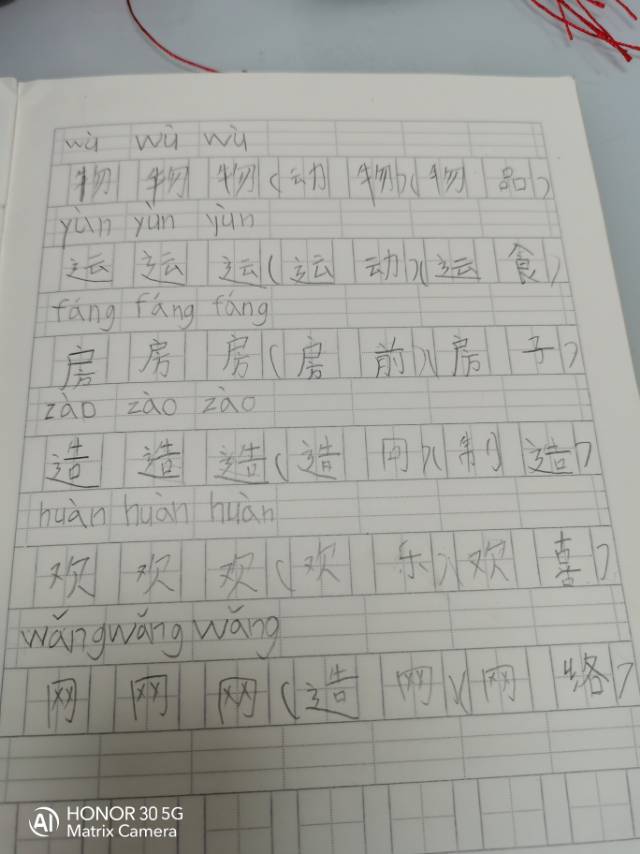 wù wù wù
物 物 物(动 物)(物 品)
yùn yùn yùn
运 运 运(运 动)(运 食)
fáng fáng fáng
房 房 房(房 前)(房 子)
zào zào zào
造 造 造(造 网)(制 造)
huàn huàn huàn
欢 欢 欢(欢 乐)(欢 喜)
wǎng wǎng wǎng
网 网 网(造 网)(网 络)
AI HONOR 30 5G
Matrix Camera